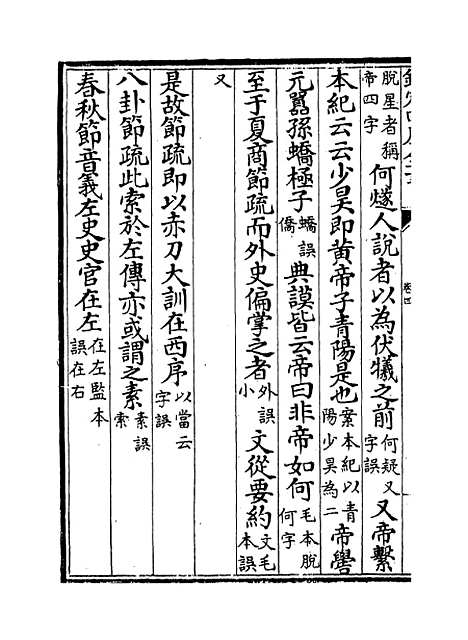 脫星者稱帝四字何燧人說者以為伏犧之前何疑又字誤又帝繫
本紀云云少昊即黃帝子青陽是也案本紀以青陽少昊為二帝嚳
元囂孫蟜極子蟜誤僑典謨皆云帝曰非帝如何毛本脫何字
至于夏商節疏而外史偏掌之者外誤小文從要約文毛本誤
又
是故節疏即以赤刀大訓在西序以當云字誤
八卦節疏此索於左傳亦或謂之素素誤索
春秋節音義左史史官在左在左監本誤在右